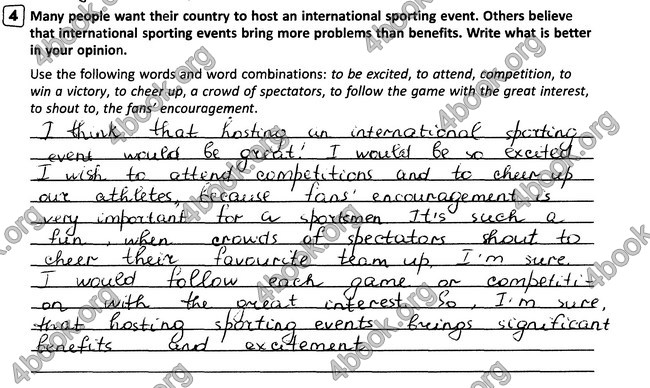 4 Many people want their country to host an international sporting event. Others believe
that international sporting events bring more problems than benefits. Write what is better
in your opinion.
Use the following words and word combinations: to be excited, to attend, competition, to
win a victory, to cheer up, a crowd of spectators, to follow the game with the great interest,
to shout to, the fans' encouragement.
I think that hosting an international sporting
event would be great! I would be so excited
I wish to attend competitions and to cheer up
our athletes, because fans' encouragement is
very important for a sportsmen. It's such a
fun, when crowds of spectators shout to
cheer their favourite team up, I'm sure.
I would follow each game or competiti-
on with the great interest. So, I'm sure,
that hosting sporting events brings significant
benefits and excitement
4book.org